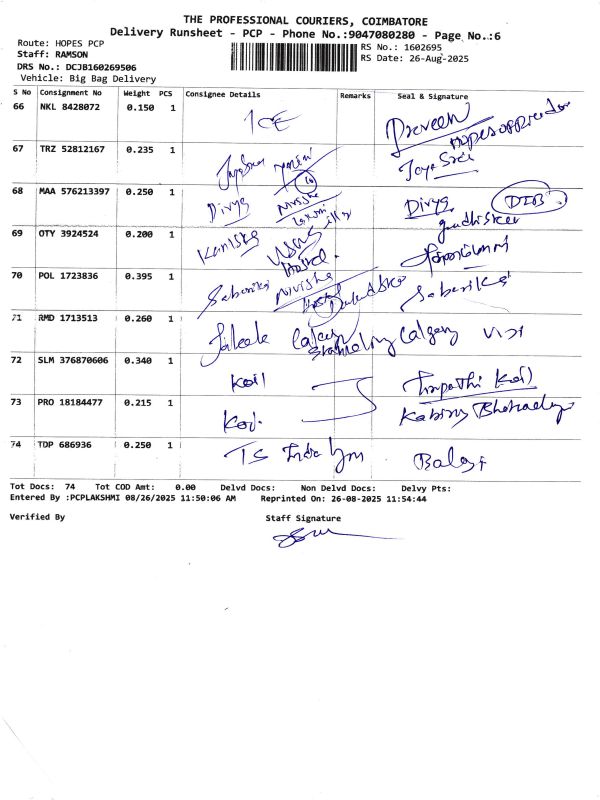 THE PROFESSIONAL COURIERS, COIMBATORE
Delivery Runsheet - PCP - Phone No.:9047080280 - Page No.:6
Route: HOPES PCP
RS No.: 1602695
Staff: RAMSON
RS Date: 26-Aug-2025
DRS No.: DCJB160269506
Vehicle: Big Bag Delivery
S No Consignment No Weight PCS Consignee Details Remarks Seal & Signature
66 NKL 8428072 0.150 1 ICE Praveen
67 TRZ 52812167 0.235 1 Jaya Sree
68 MAA 576213397 0.250 1 Divya Nivisha Divya
69 OTY 3924524 0.200 1 Kaniska
70 POL 1723836 0.395 1 Sabarika Nivisha Sabarika
71 RMD 1713513 0.260 1 Calgary
72 SLM 376870606 0.340 1 Koil Tirupathi Koil
73 PRO 18184477 0.215 1
74 TDP 686936 0.250 1 TS Balaji
Tot Docs: 74 Tot COD Amt: 0.00 Delvd Docs: Non Delvd Docs: Delvy Pts:
Entered By :PCPLAKSHMI 08/26/2025 11:50:06 AM Reprinted On: 26-08-2025 11:54:44
Verified By Staff Signature